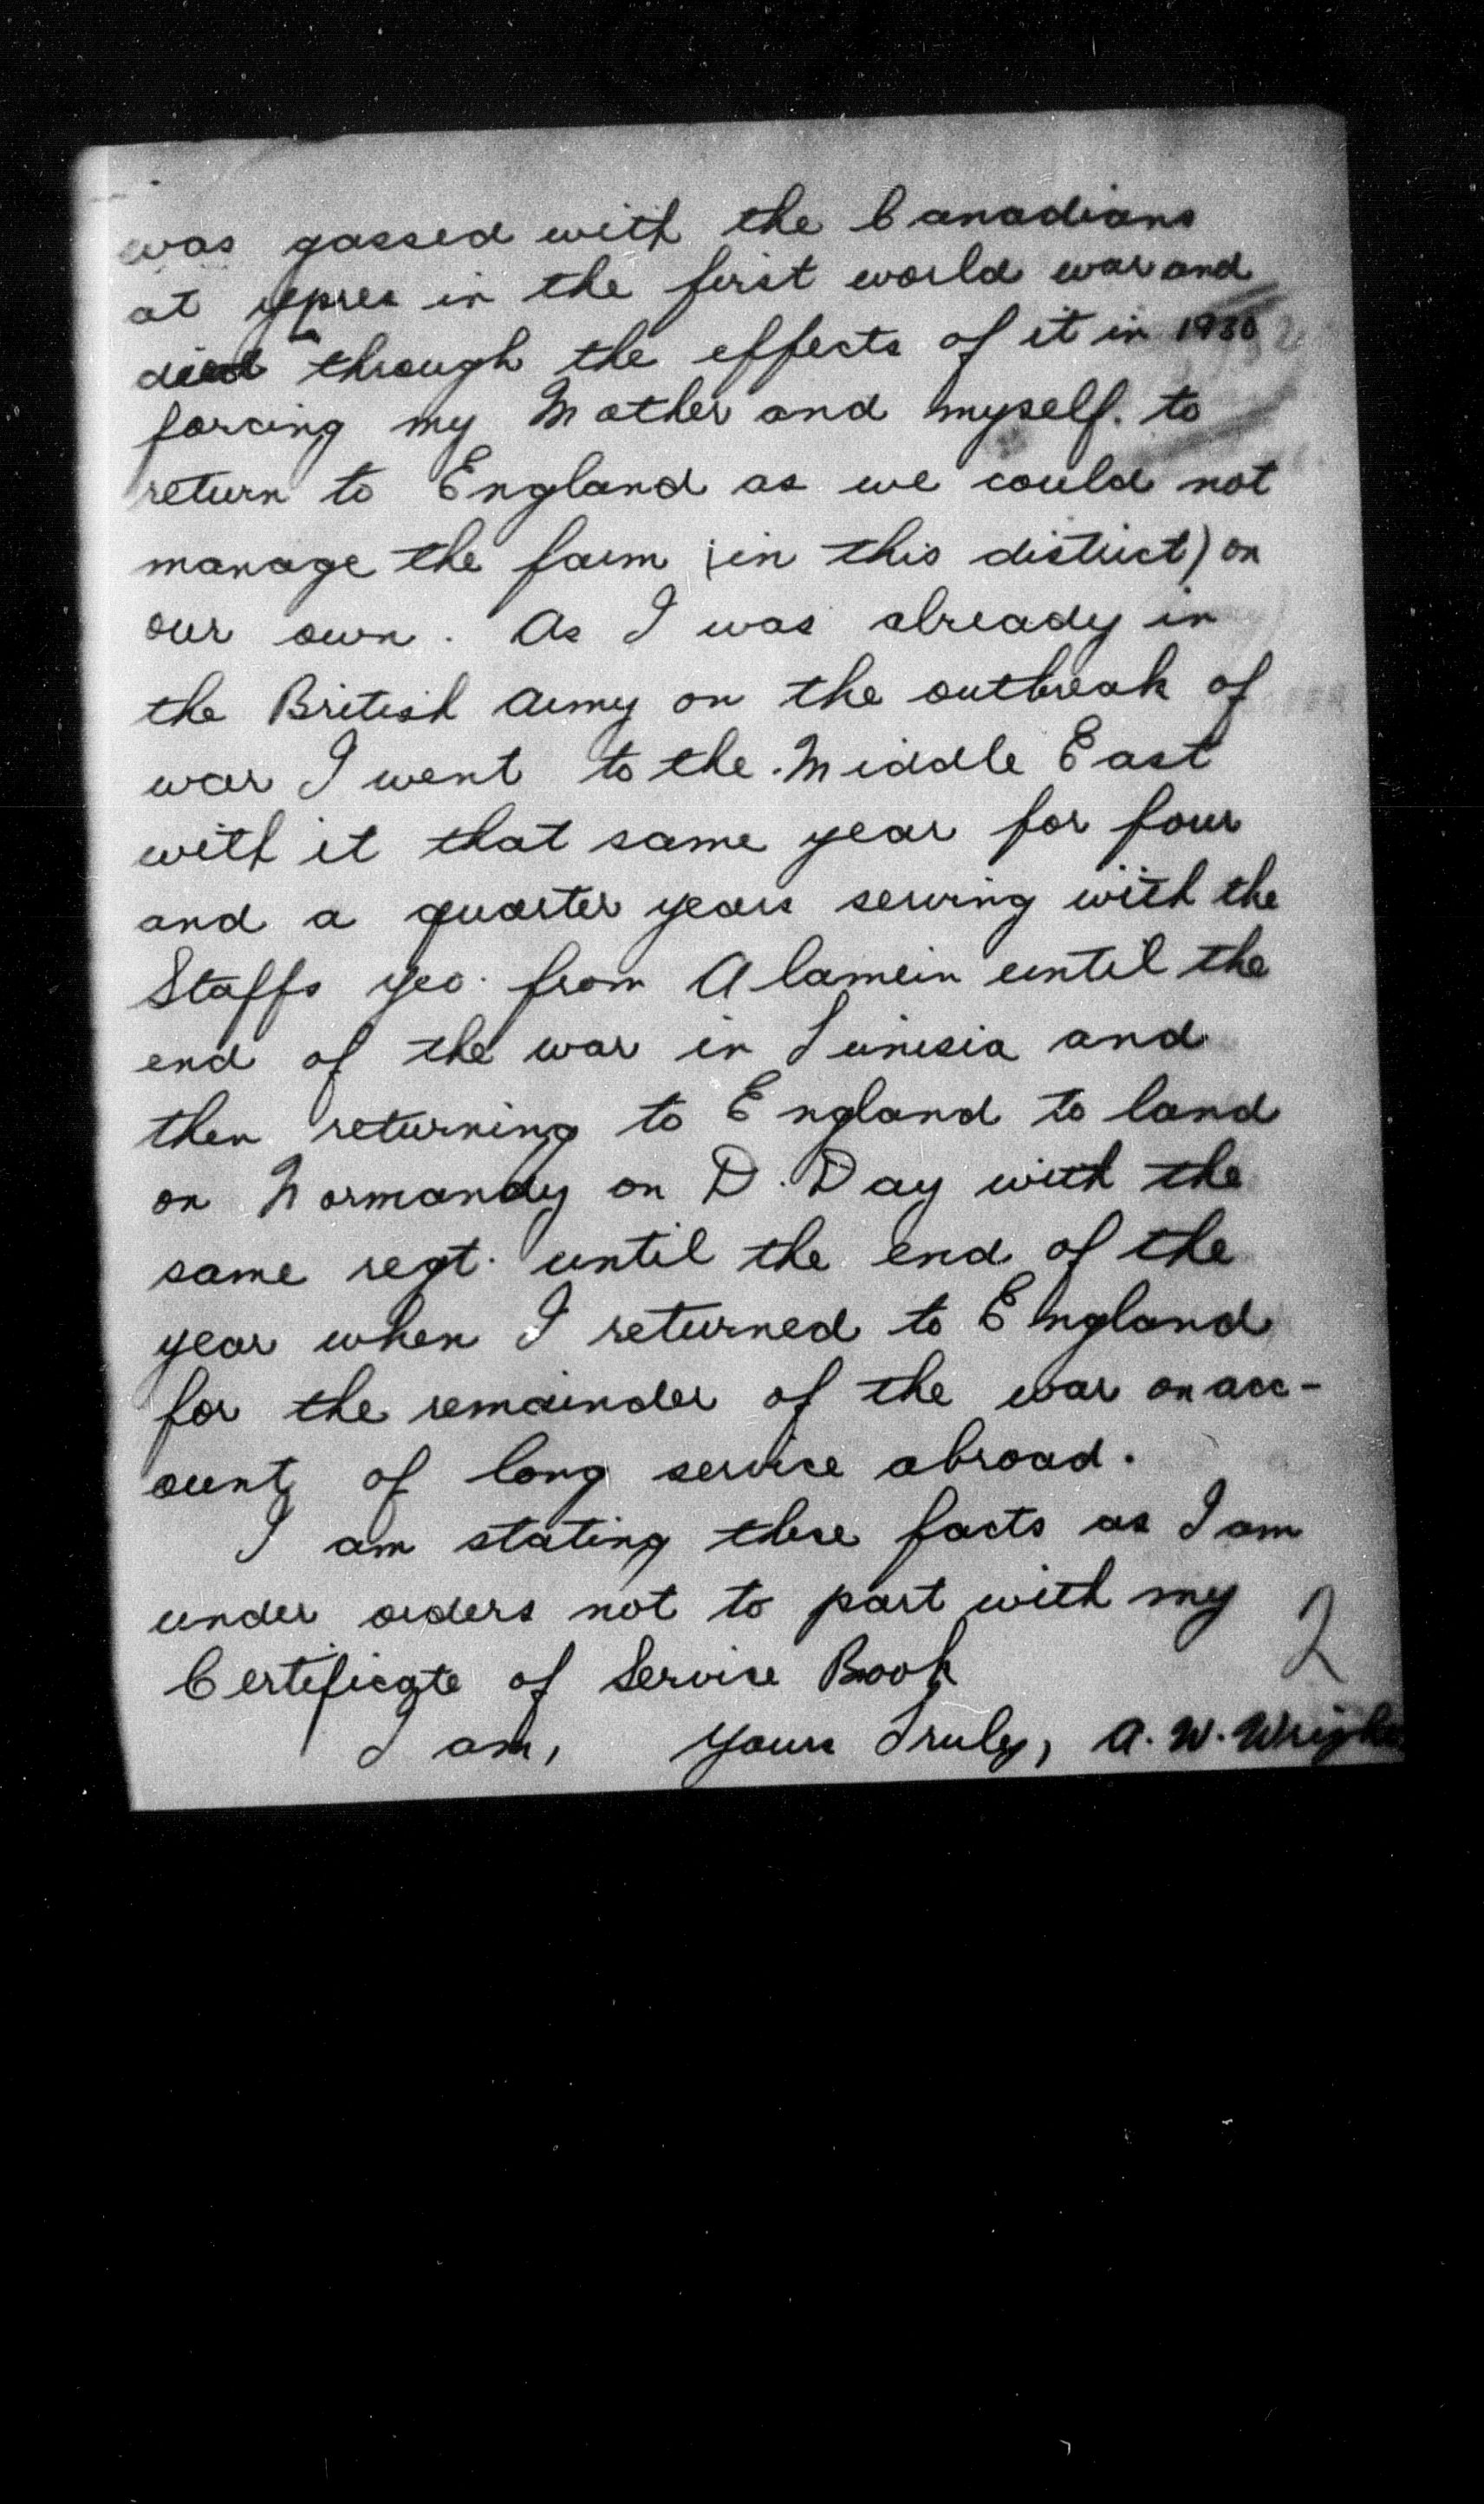 was gassed with the Canadians
at Ypres in the first world war and
died through the effects of it in 1930
forcing my Mother and myself. to
return to England as we could not
manage the farm (in this district) on
our own. As I was already in
the British Army on the outbreak of
war I went to the Middle East
with it that same year for four
and a quarter years serving with the
Staffs Yeo. from Alamein until the
end of the war in Tunisia and
then returning to England to land
on Normandy on D. Day with the
same regt. until the end of the
year when I returned to England
for the remainder of the war on acc-
ount of long service abroad.
I am stating these facts as I am
under orders not to part with my
Certificate of Service Book
I am, Yours Truly, A. W. Wright
2